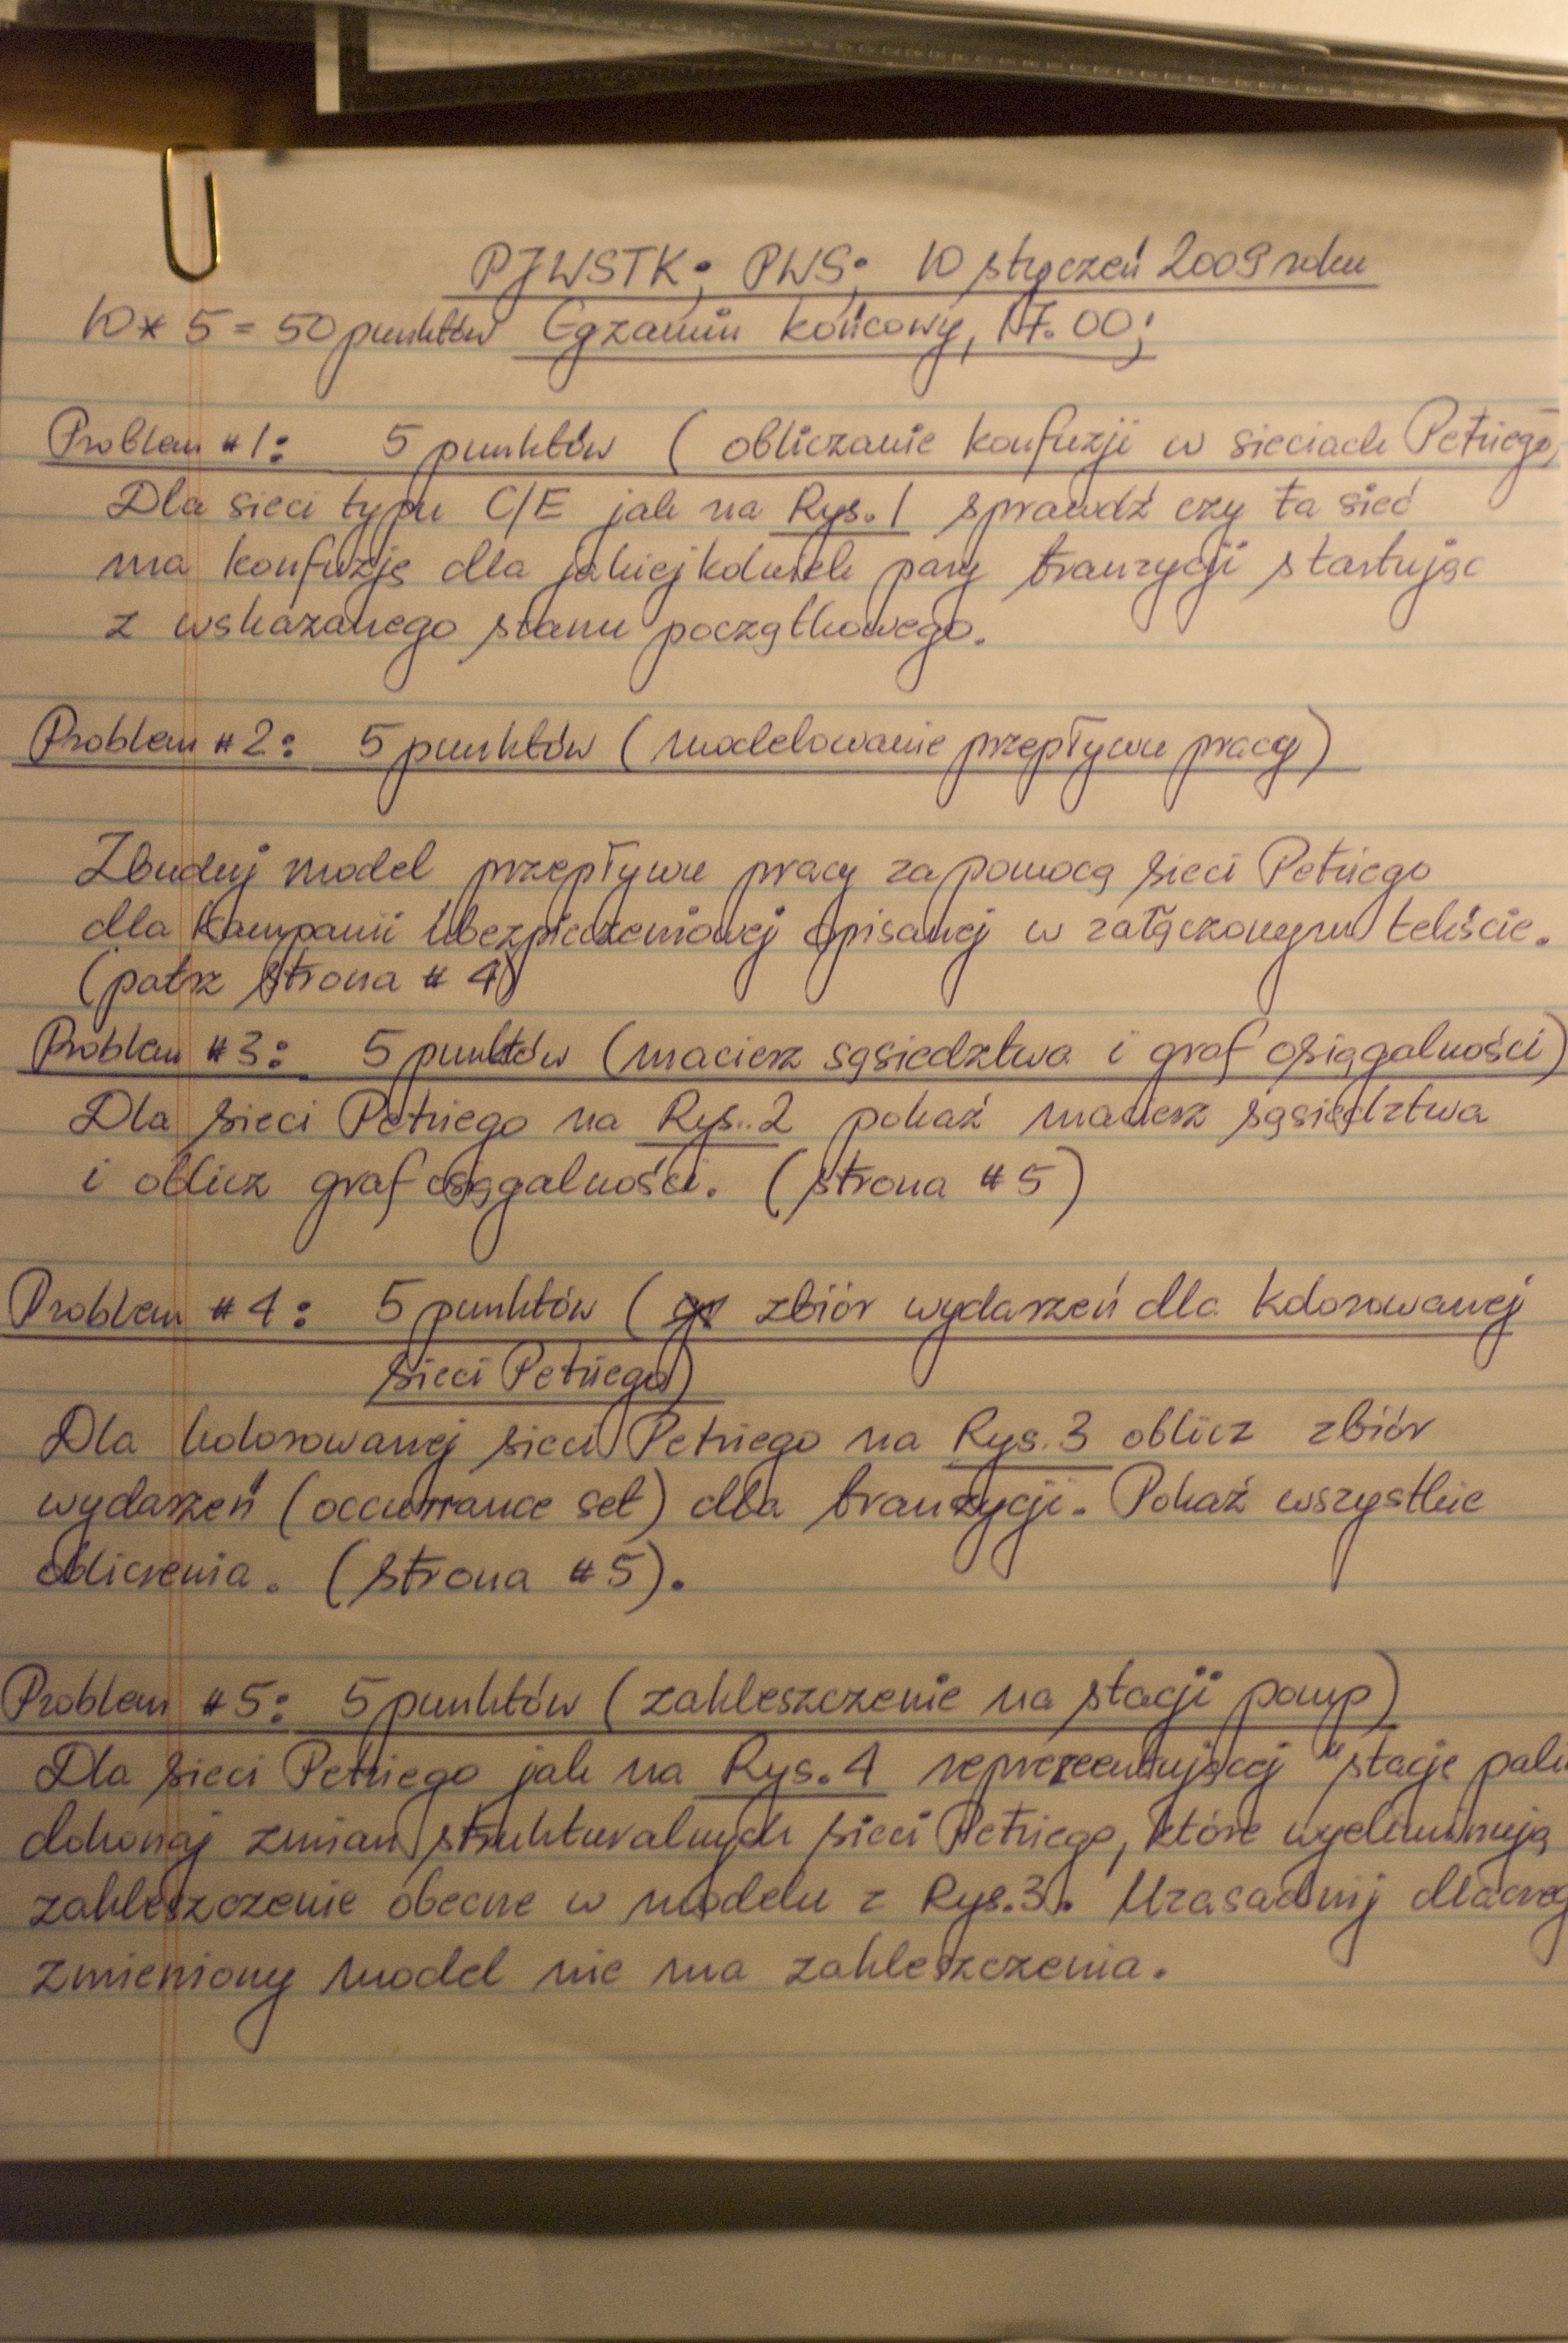 PJWSTK; PWS; 10 styczeń 2009 roku
10 * 5 = 50 punktów Egzamin końcowy, 17.00;
Problem #1: 5 punktów (obliczanie konfuzji w sieciach Petriego)
Dla sieci typu C/E jak na Rys.1 sprawdź czy ta sieć
ma konfuzję dla jakiejkolwiek pary tranzycji startując
z wskazanego stanu początkowego.
Problem #2: 5 punktów (modelowanie przepływu pracy)
Zbuduj model przepływu pracy za pomocą sieci Petriego
dla Kampanii Ubezpieczeniowej opisanej w załączonym tekście.
(patrz strona #4)
Problem #3: 5 punktów (macierz sąsiedztwa i graf osiągalności)
Dla sieci Petriego na Rys.2 pokaż macierz sąsiedztwa
i oblicz graf osągalności. (strona #5)
Problem #4: 5 punktów ( zbiór wydarzeń dla kolorowanej
sieci Petriego)
Dla kolorowanej sieci Petriego na Rys.3 oblicz zbiór
wydarzeń (occurrance set) dla tranzycji. Pokaż wszystkie
obliczenia. (strona #5).
Problem #5: 5 punktów (zakleszczenie na stacji pomp)
Dla sieci Petriego jak na Rys.4 reprezeentującej "stację pali
dokonaj zmian strukturalnych sieci Petriego, które wyeliminują
zakleszczenie obecne w modelu z Rys.3. Uzasadnij dlaczeg
zmieniony model nie ma zakleszczenia.